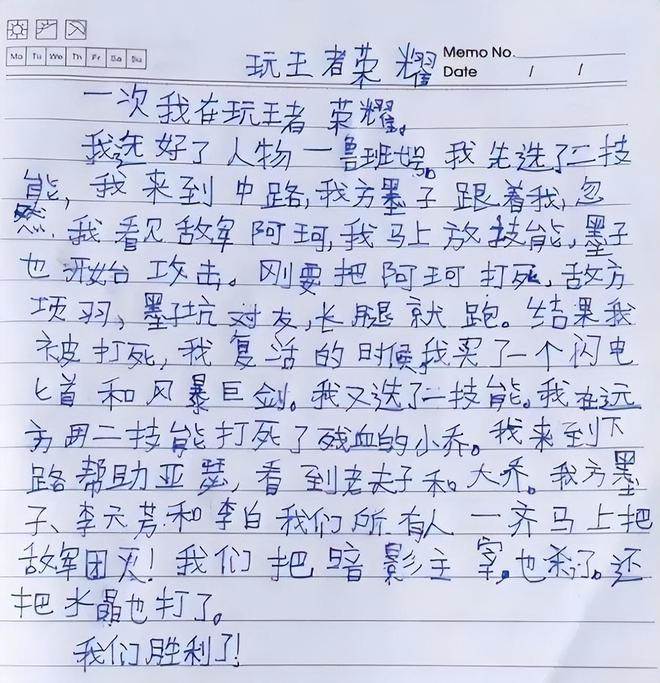 Mo Tu We Th Fr Sa Su
Memo No.
Date / /
玩王者荣耀
一次我在玩王者荣耀。
我选好了人物一鲁班七号。我先选了二技
能,我来到中路,我方墨子跟着我,忽
然,我看见敌军阿珂,我马上放技能,墨子
也开始攻击。刚要把阿珂打死,敌方
项羽,墨子坑对友,长腿就跑。结果我
被打死,我复活的时候,我买了一个闪电
匕首和风暴巨剑。我又选了二技能。我在远
方用二技能打死了残血的小乔。我来到下
路帮助亚瑟,看到老夫子和大乔。我方墨
子、李元芳和李白我们所有人一齐马上把
敌军团灭!我们把暗影主宰,也杀了。还
把水晶也打了。
我们胜利了!